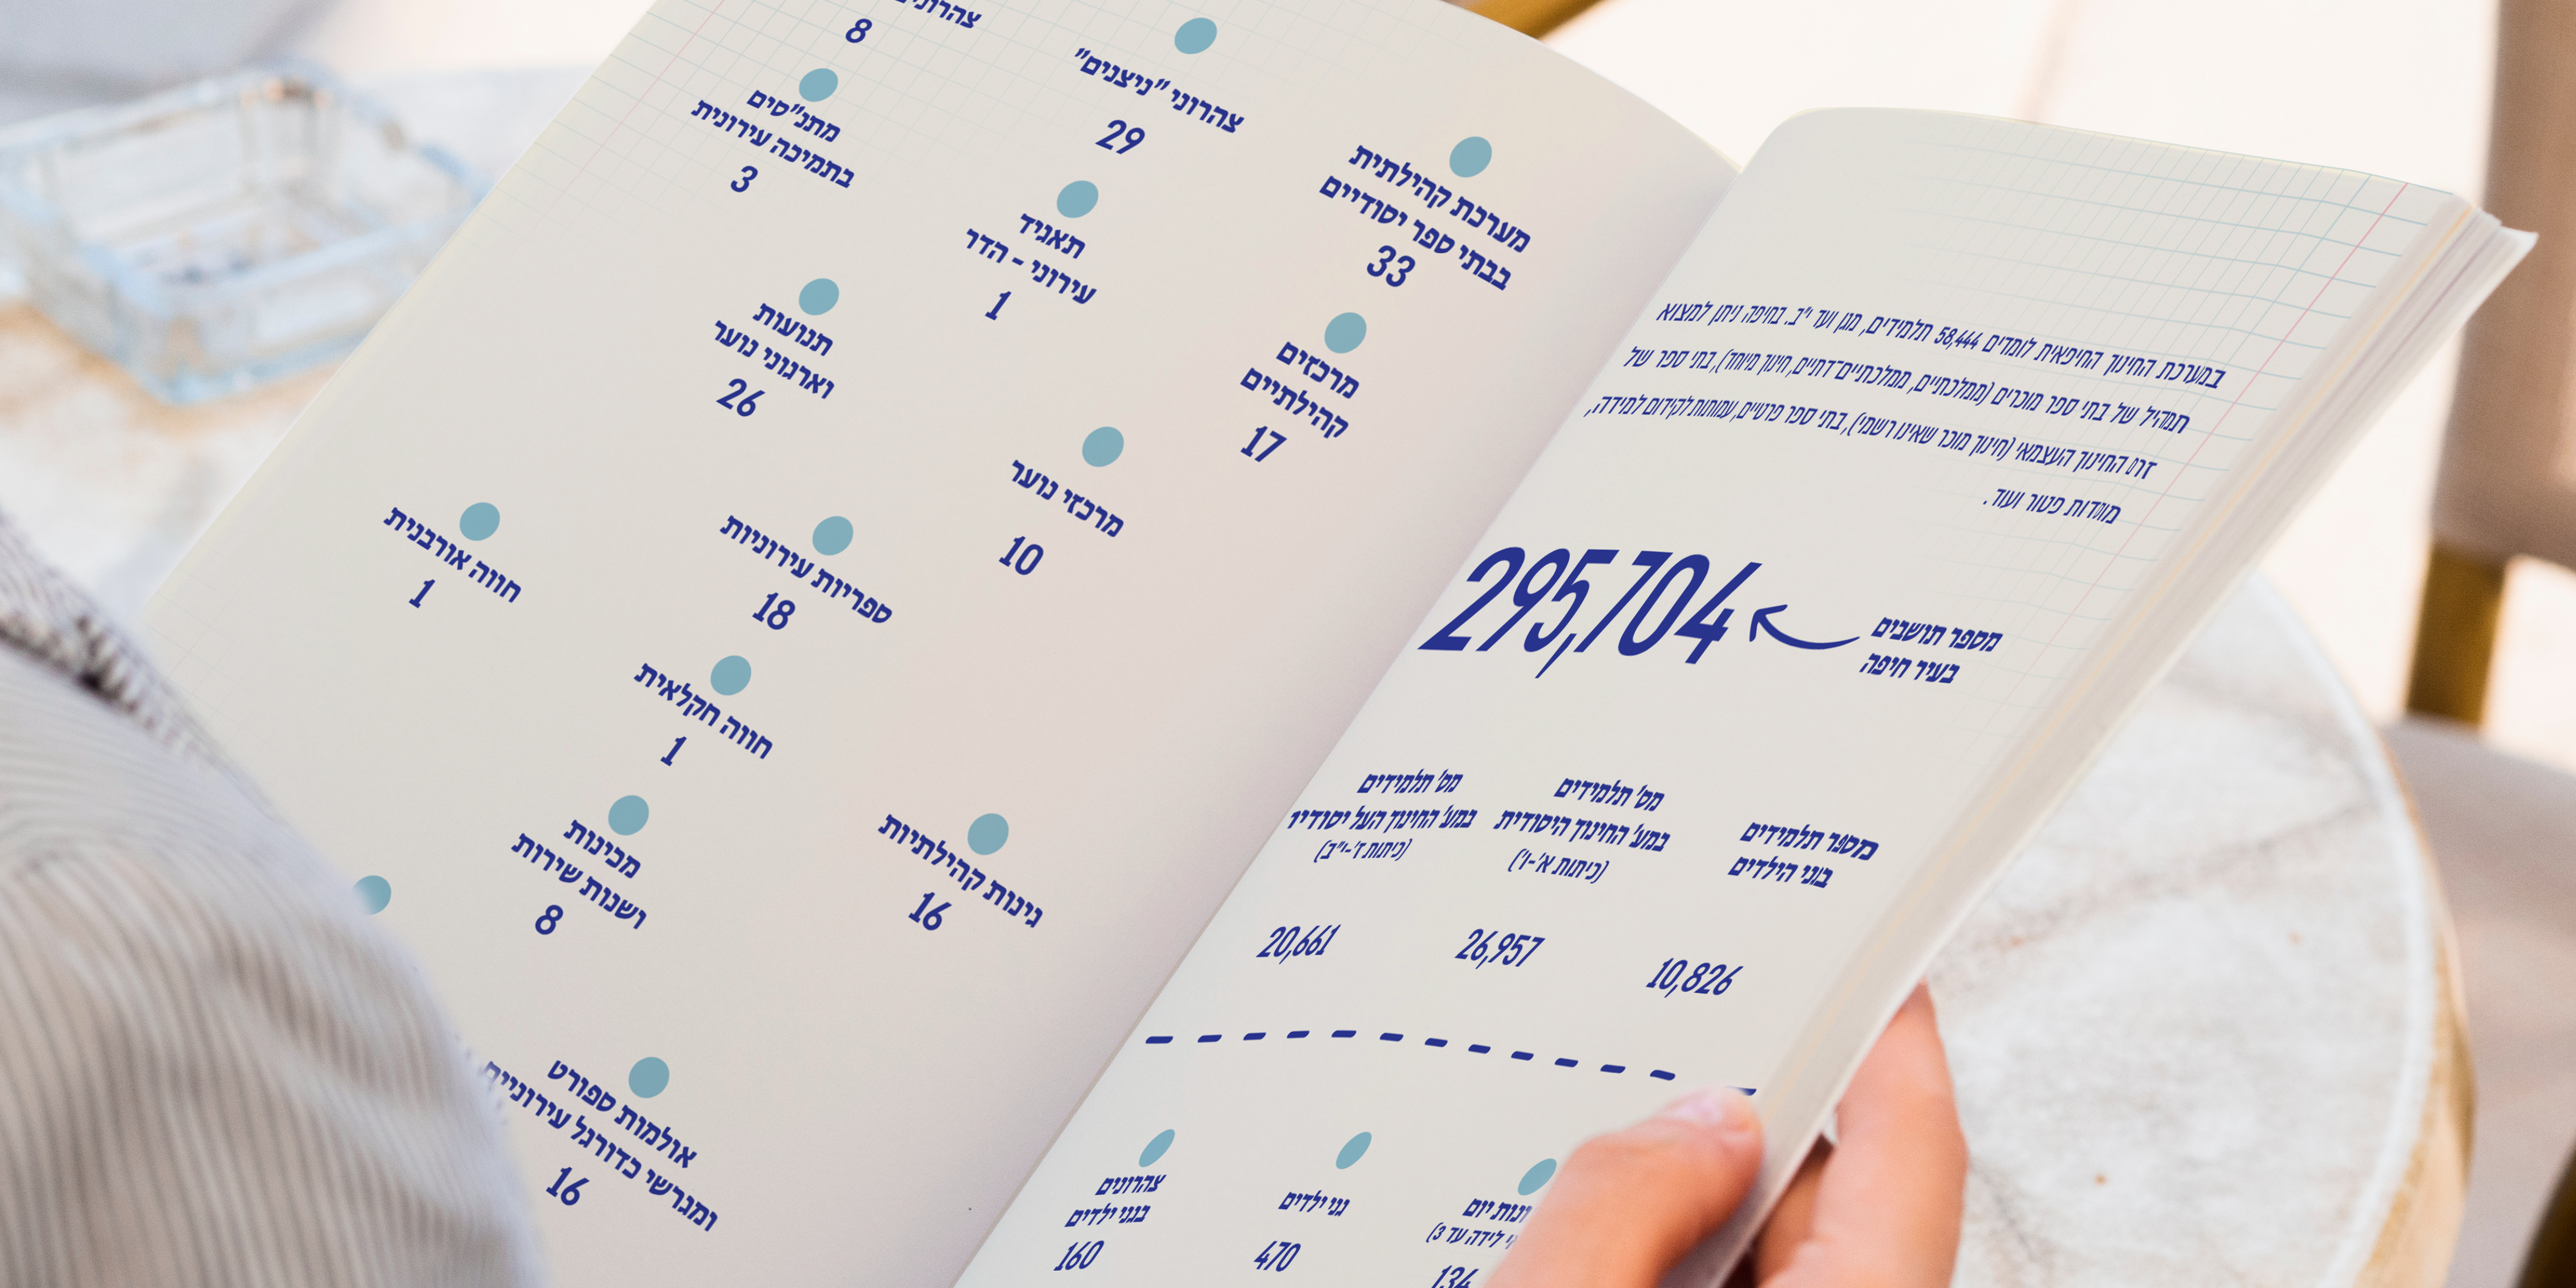 במערכת החינוך החיפאית לומדים 58,444 תלמידים, מגן ועד י"ב. בחיפה ניתן למצוא
תמהיל של בתי ספר מוכרים (ממלכתיים, ממלכתיים־דתיים, חינוך מיוחד), בתי ספר של
זרם החינוך העצמאי (חינוך מוכר שאינו רשמי), בתי ספר פרטיים, עמותות לקידום למידה,
מוסדות פטור ועוד.
מספר תושבים
בעיר חיפה
295,704
מספר תלמידים
בגני הילדים
10,826
מס' תלמידים
במע' החינוך היסודית
(כיתות א'-ו')
26,957
מס' תלמידים
במע' החינוך העל יסודית
(כיתות ז'-י"ב)
20,661
יום
לידה עד 3)
134
גני ילדים
470
צהרונים
בגני ילדים
160
מערכת קהילתית
בבתי ספר יסודיים
33
צהרוני "ניצנים"
29
8
מתנ"סים
בתמיכה עירונית
3
תאגיד
עירוני - הדר
1
מרכזים
קהילתיים
17
תנועות
וארגוני נוער
26
מרכזי נוער
10
ספריות עירוניות
18
חווה אורבנית
1
חווה חקלאית
1
גינות קהילתיות
16
מכינות
ושנות שירות
8
אולמות ספורט
ומגרשי כדורגל עירוניים
16